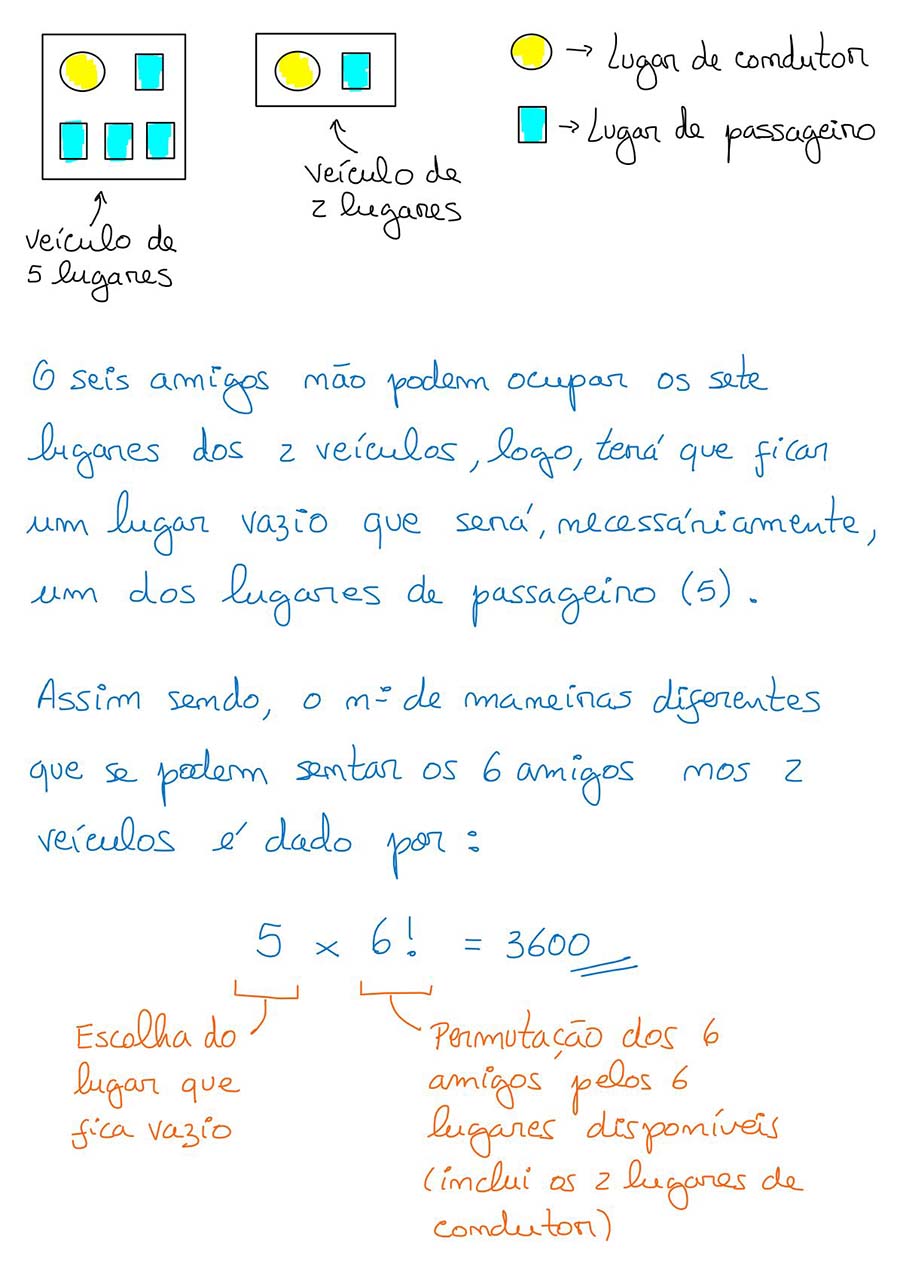 → Lugar de condutor
→ Lugar de passageiro
veículo de
2 lugares
veículo de
5 lugares
O seis amigos não podem ocupar os sete
lugares dos 2 veículos, logo, terá que ficar
um lugar vazio que será, necessáriamente,
um dos lugares de passageiro (5).
Assim sendo, o nº de maneiras diferentes
que se podem sentar os 6 amigos nos 2
veículos é dado por:
5 × 6! = 3600
Escolha do
lugar que
fica vazio
Permutação dos 6
amigos pelos 6
lugares disponíveis
(inclui os 2 lugares de
condutor)